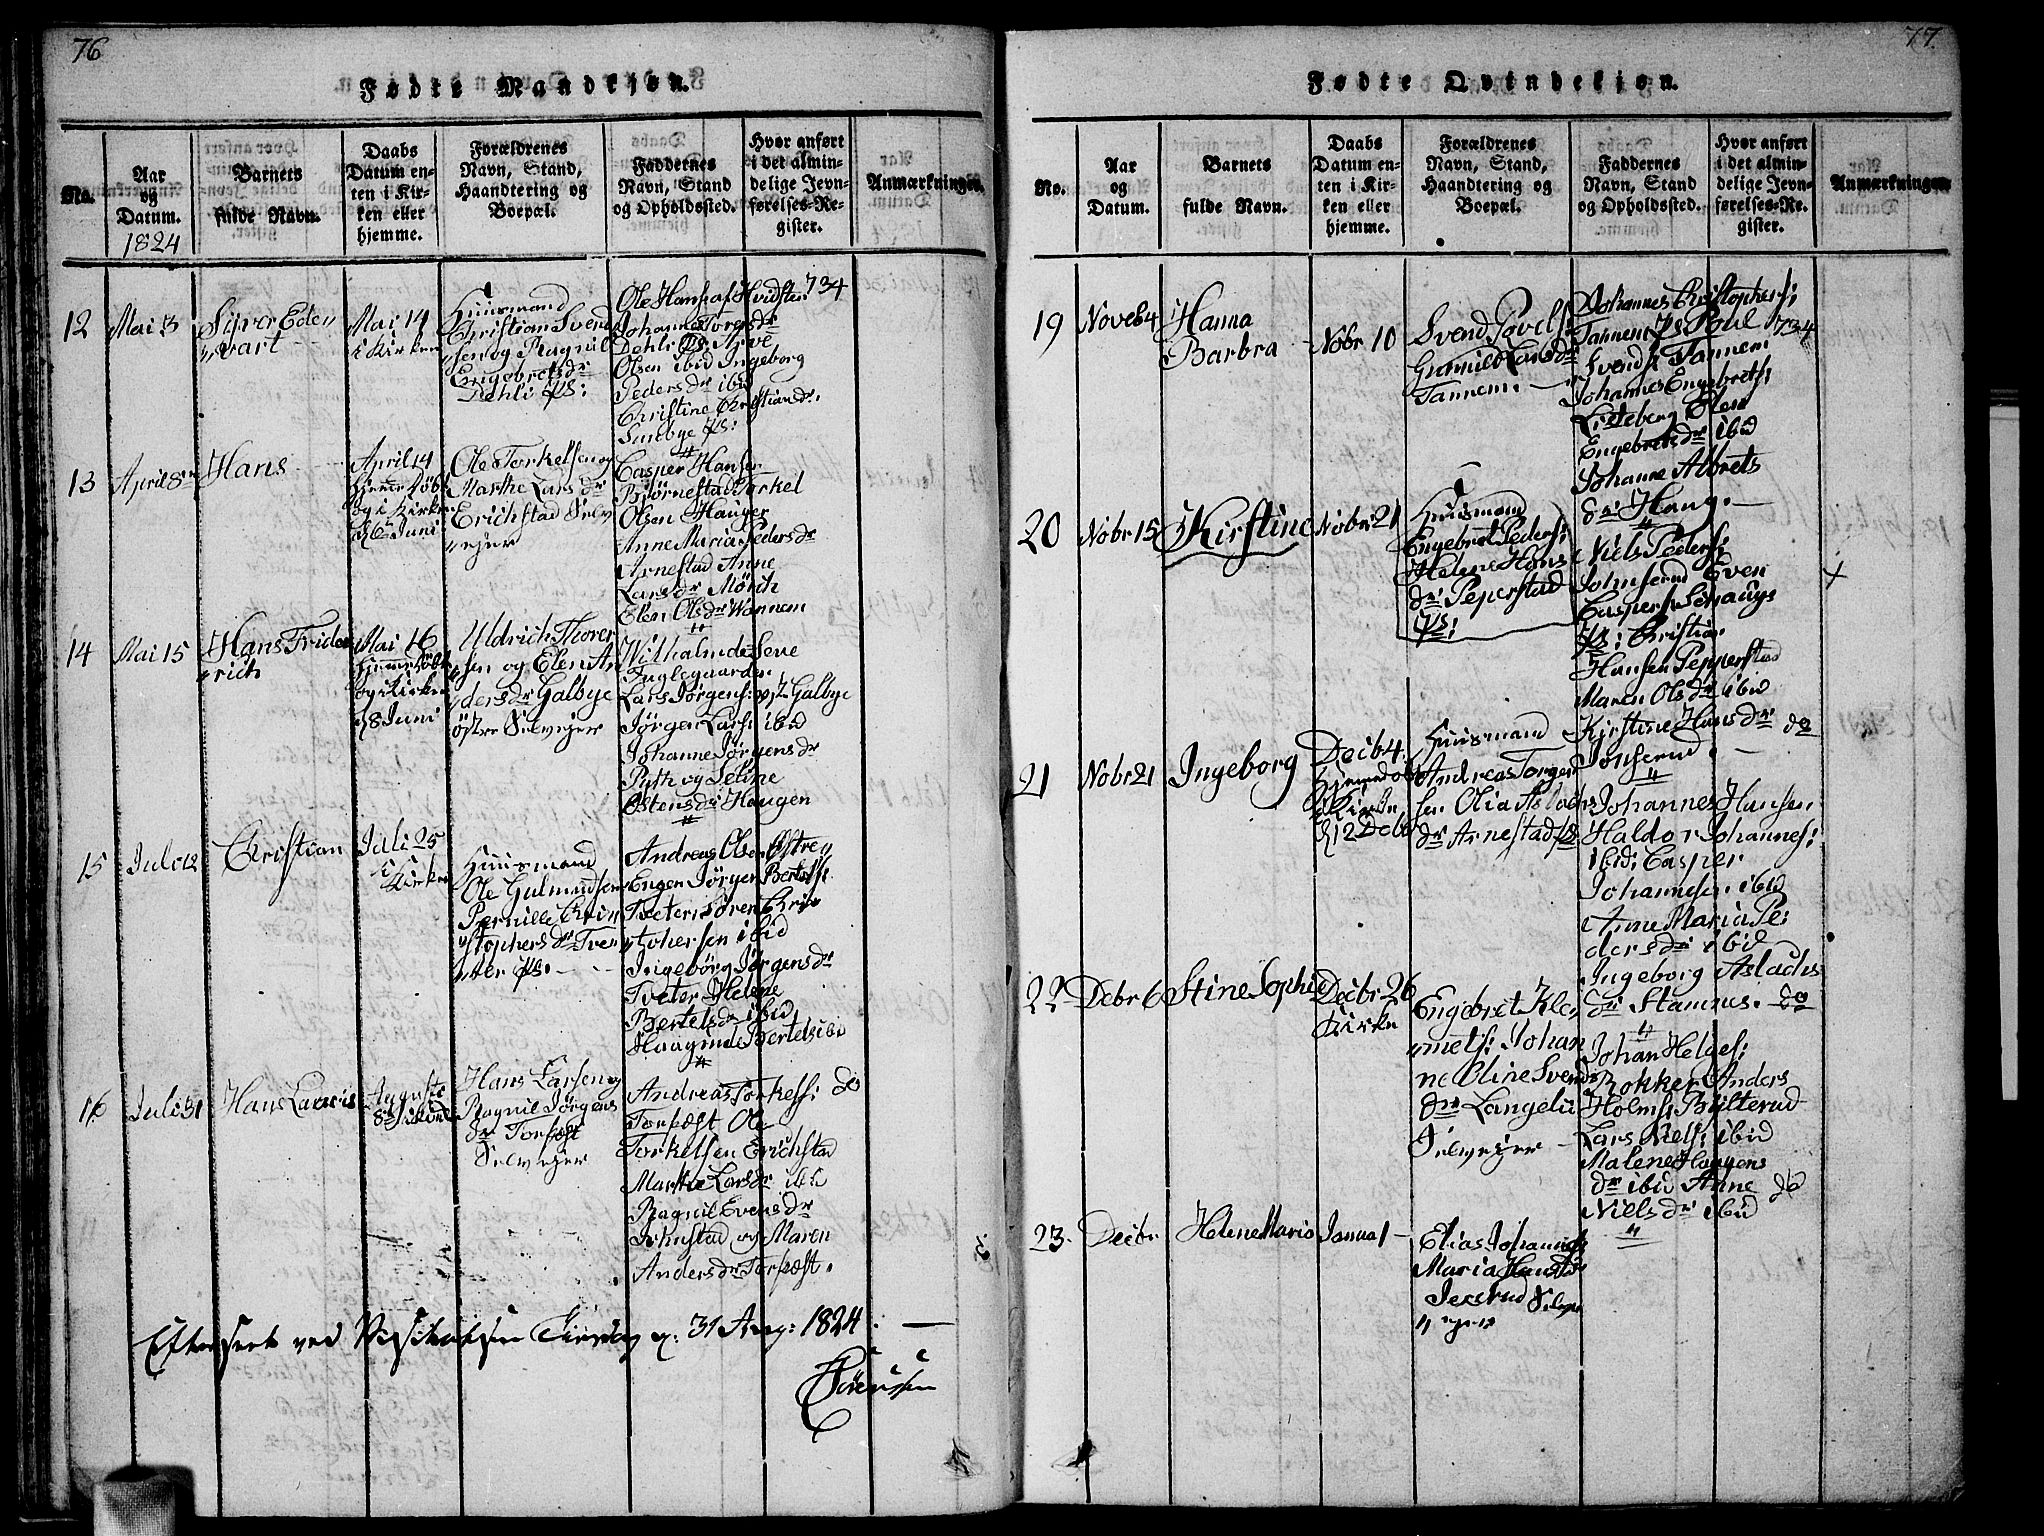 76
Fødte Mandkjøn.
No.
Aar
og
Datum.
1824
Barnets
fulde Navn.
Daabs
Datum en-
ten i Kir-
ken eller
hjemme.
Forældrenes
Navn, Stand,
Haandtering og
Boepæl.
Faddernes
Navn, Stand
og Opholdssted.
Hvor anført
i det almin-
delige Jevn-
førelses-Re-
gister.
Anmærkninger.
12
Mai 3
Siver Eden
"vart
Mai 14
i Kirken
Huusmand
Christian Svend
"sen og Ragnil
Engebretsdr
Dehli Ps:
Ole Hans af Hvidsten
Johannes Torgersdr
Dehli Ps Arve
Olsen ibid Ingeborg
Pedersdr ibid
Christine Christiandr.
Sundbye Ps:
734
13
April 8
Hans
April 14
Hjemmedøbt
og i Kirken
d 6te Juni
Ole Torkelsen og
Marthe Larsdr
Erichstad Selv
"ejer
Casper Hansen
Bjørnestad Torkel
Olsen Hauger
Anne Maria Pedersdr
Arnestad Anne
Larsdr Mörch
Elen Olsdr Wannem
14
Mai 15
Hans Frider
"rich
Mai 16
Hjemmedøbt
og i Kirken
d 8 Juni
Uldrich Thorer
"sen og Elen An
"dersdr Galbye
östre Selvejer
Wilhalm de Seve
Fuglegaarden
Lars Jörgens: Galbye
Jörgen Lars: ibid
Johanne Jörgensdr
Ryth og Seline
Ostensdr Haugen
15
Juli 12
Christian
Juli 25
i Kirken
Huusmand
Ole Gulmundsen
Pernille Chri
"stophersdr Tve
"ter Ps.
Andreas Olsen Østren
Engen Jörgen Bertels:
Tveter Sören Chri
"stophersen ibid
Ingebörg Jörgensdr
Tveter Helene
Bertelsdr ibid
Haagine Bertels ibid
16
Juli 31
Hans Laurits
Auguste
8de i Kirken
Hans Larsen og
Ragnil Jörgens
dr Torpæst
Selvejer
Andreas Torkels: do
Torpæst Ole
Torkelsen Erichstad
Marthe Larsdr ibid
Ragnil Evensdr
Johnstad og Maren
Andersdr Torpæst.
Efterseet ved Visitatsen Tirsdag d: 31 Aug: 1824.
Sörenssen
77
Fødte Qvindekjøn.
No.
Aar
og
Datum.
Barnets
fulde Navn.
Daabs
Datum en-
ten i Kir-
ken eller
hjemme.
Forældrenes
Navn, Stand,
Haandtering og
Boepæl.
Faddernes
Navn, Stand
og Opholdssted.
Hvor anført
i det almin-
delige Jevn-
førelses-Re-
gister.
Anmærkninger
19
Noveb 4
Hanna
Barbra
Nobr 10
Svend Povels:
Gunnild Larsdr
Tannem.
Johannes Christophers:
Tannem Ps Poul
Svends: Tannem
Johannes Engebrets:
Listeberg Elen
Engebretsdr ibid
Johanne Albrets
dr: Haug.
734
20
Nobr 15
Kirstine
Nobr 21
Huusmand
Engebret Peders:
Helene Hans
dr: Peperstad
Ps:
Niels Peders:
Johnserud Even
Caspers: Schaugs
Ps: Christian
Hansen Pepperstad
Maren Olsdr ibid
Kirstine Hansdr do
Jonserud.
+
21
Nobr 21
Ingeborg
Decb 4.
Hjemmedøbt
i Kirke
d 12 Decbr
Huusmand
Andreas Torger
sen Olia Aslachs
dr Arnestad Ps
Johannes Hansen
Haldor Johannes:
ibid: Casper
Johannesen ibid
Anne Maria Pe:
dersdr: ibid
Ingeborg Aslachs
dr: Stamnes. do
22
Debr 6
Stine Sophie
Decbr 26
Kirke
Engebret Kle,
"mets: Johan
ne Oline Svends
dr Langelii
Selvejer
Johan Helges:
Rokker Anders
Holms: Bylterud
Lars Niels: ibid
Malene Haagens
dr ibid Anne do
Nielsdr ibid
23.
Decbr
Helene Maria
Janua 1
Elias Johannes:
Maria Hansdr
Jeserud Selv
"ejer